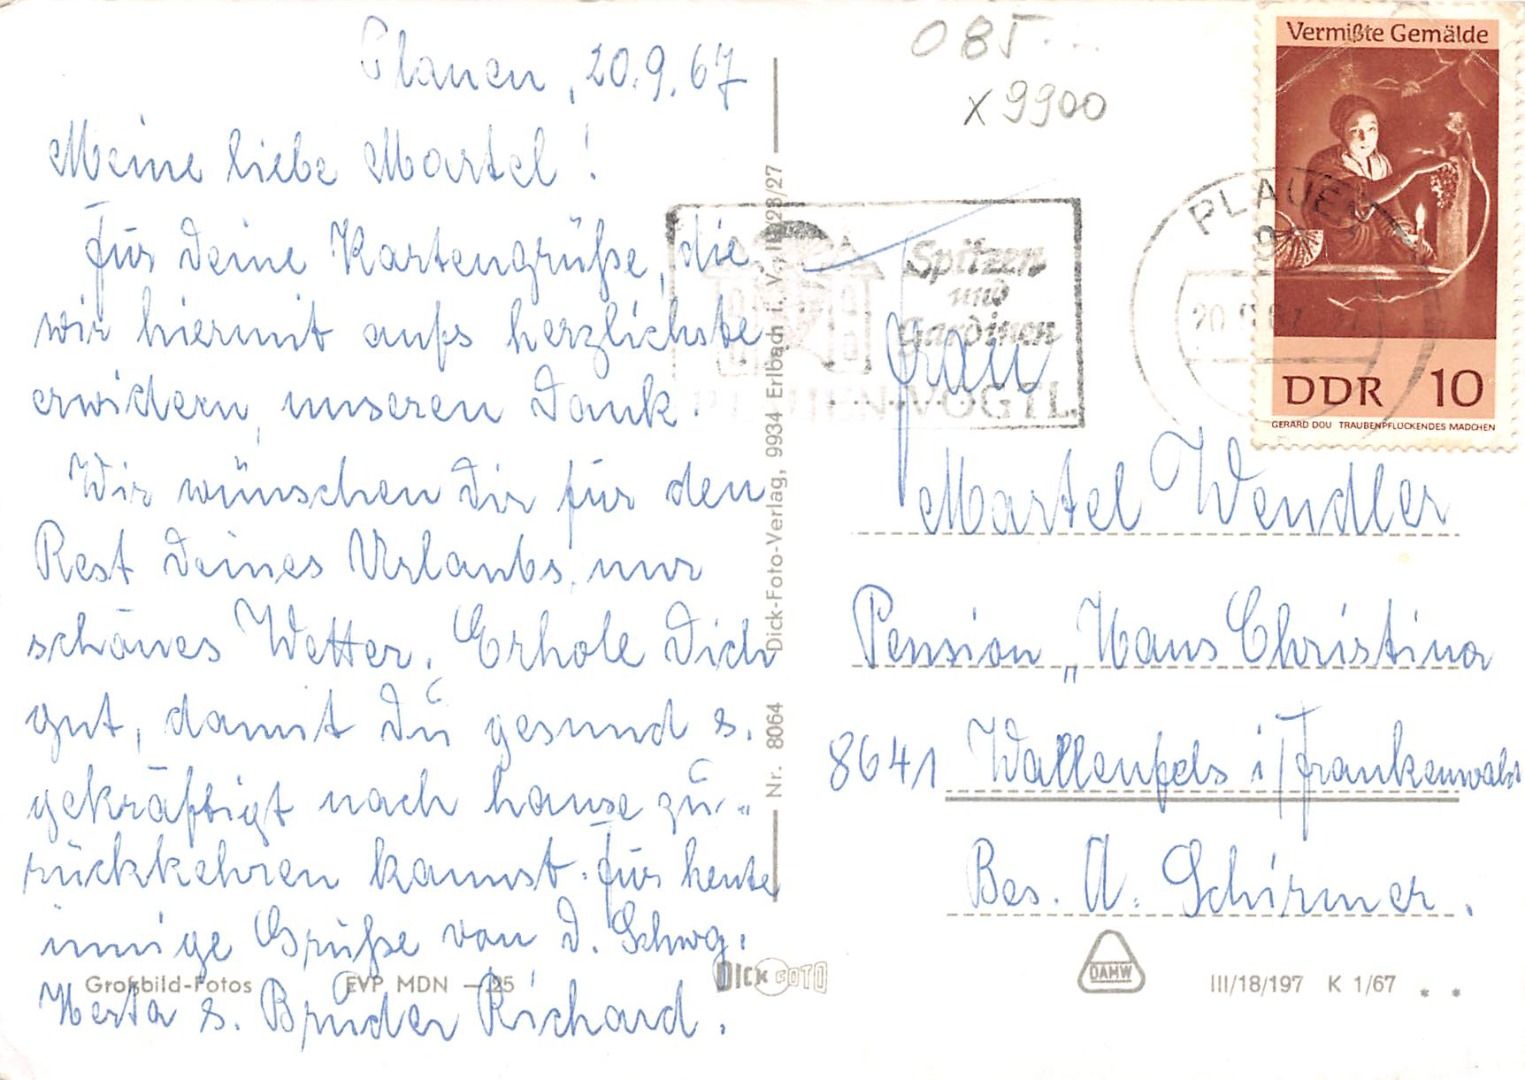 Plauen, 20.9.67
Meine liebe Martel!
Für Deine Kartengrüße, die
wir hiermit aufs herzlichste
erwidern, unseren Dank.
Wir wünschen Dir für den
Rest Deines Urlaubs nur
schönes Wetter. Erhole Dich
gut, damit Du gesund u.
gekräftigt nach hause zu-
rückkehren kannst. Für heute
innige Grüße von D. Schwg.
Herta u. Bruder Richard.
Großbild-Fotos EVP MDN —.25
Nr. 8064 Dick-Foto-Verlag, 9934 Erlbach i. V. 28/27
DICK FOTO
085
x 9900
Spitzen
und
Gardinen
PLAUEN·VOGTL.
PLAUEN
20.9.67
Vermißte Gemälde
DDR 10
GERARD DOU TRAUBENPFLÜCKENDES MÄDCHEN
Frau
Martel Wendler
Pension „Haus Christina
8641 Wallenfels i/Frankenwald
Bes. A. Schirmer.
DAMW
III/18/197 K 1/67